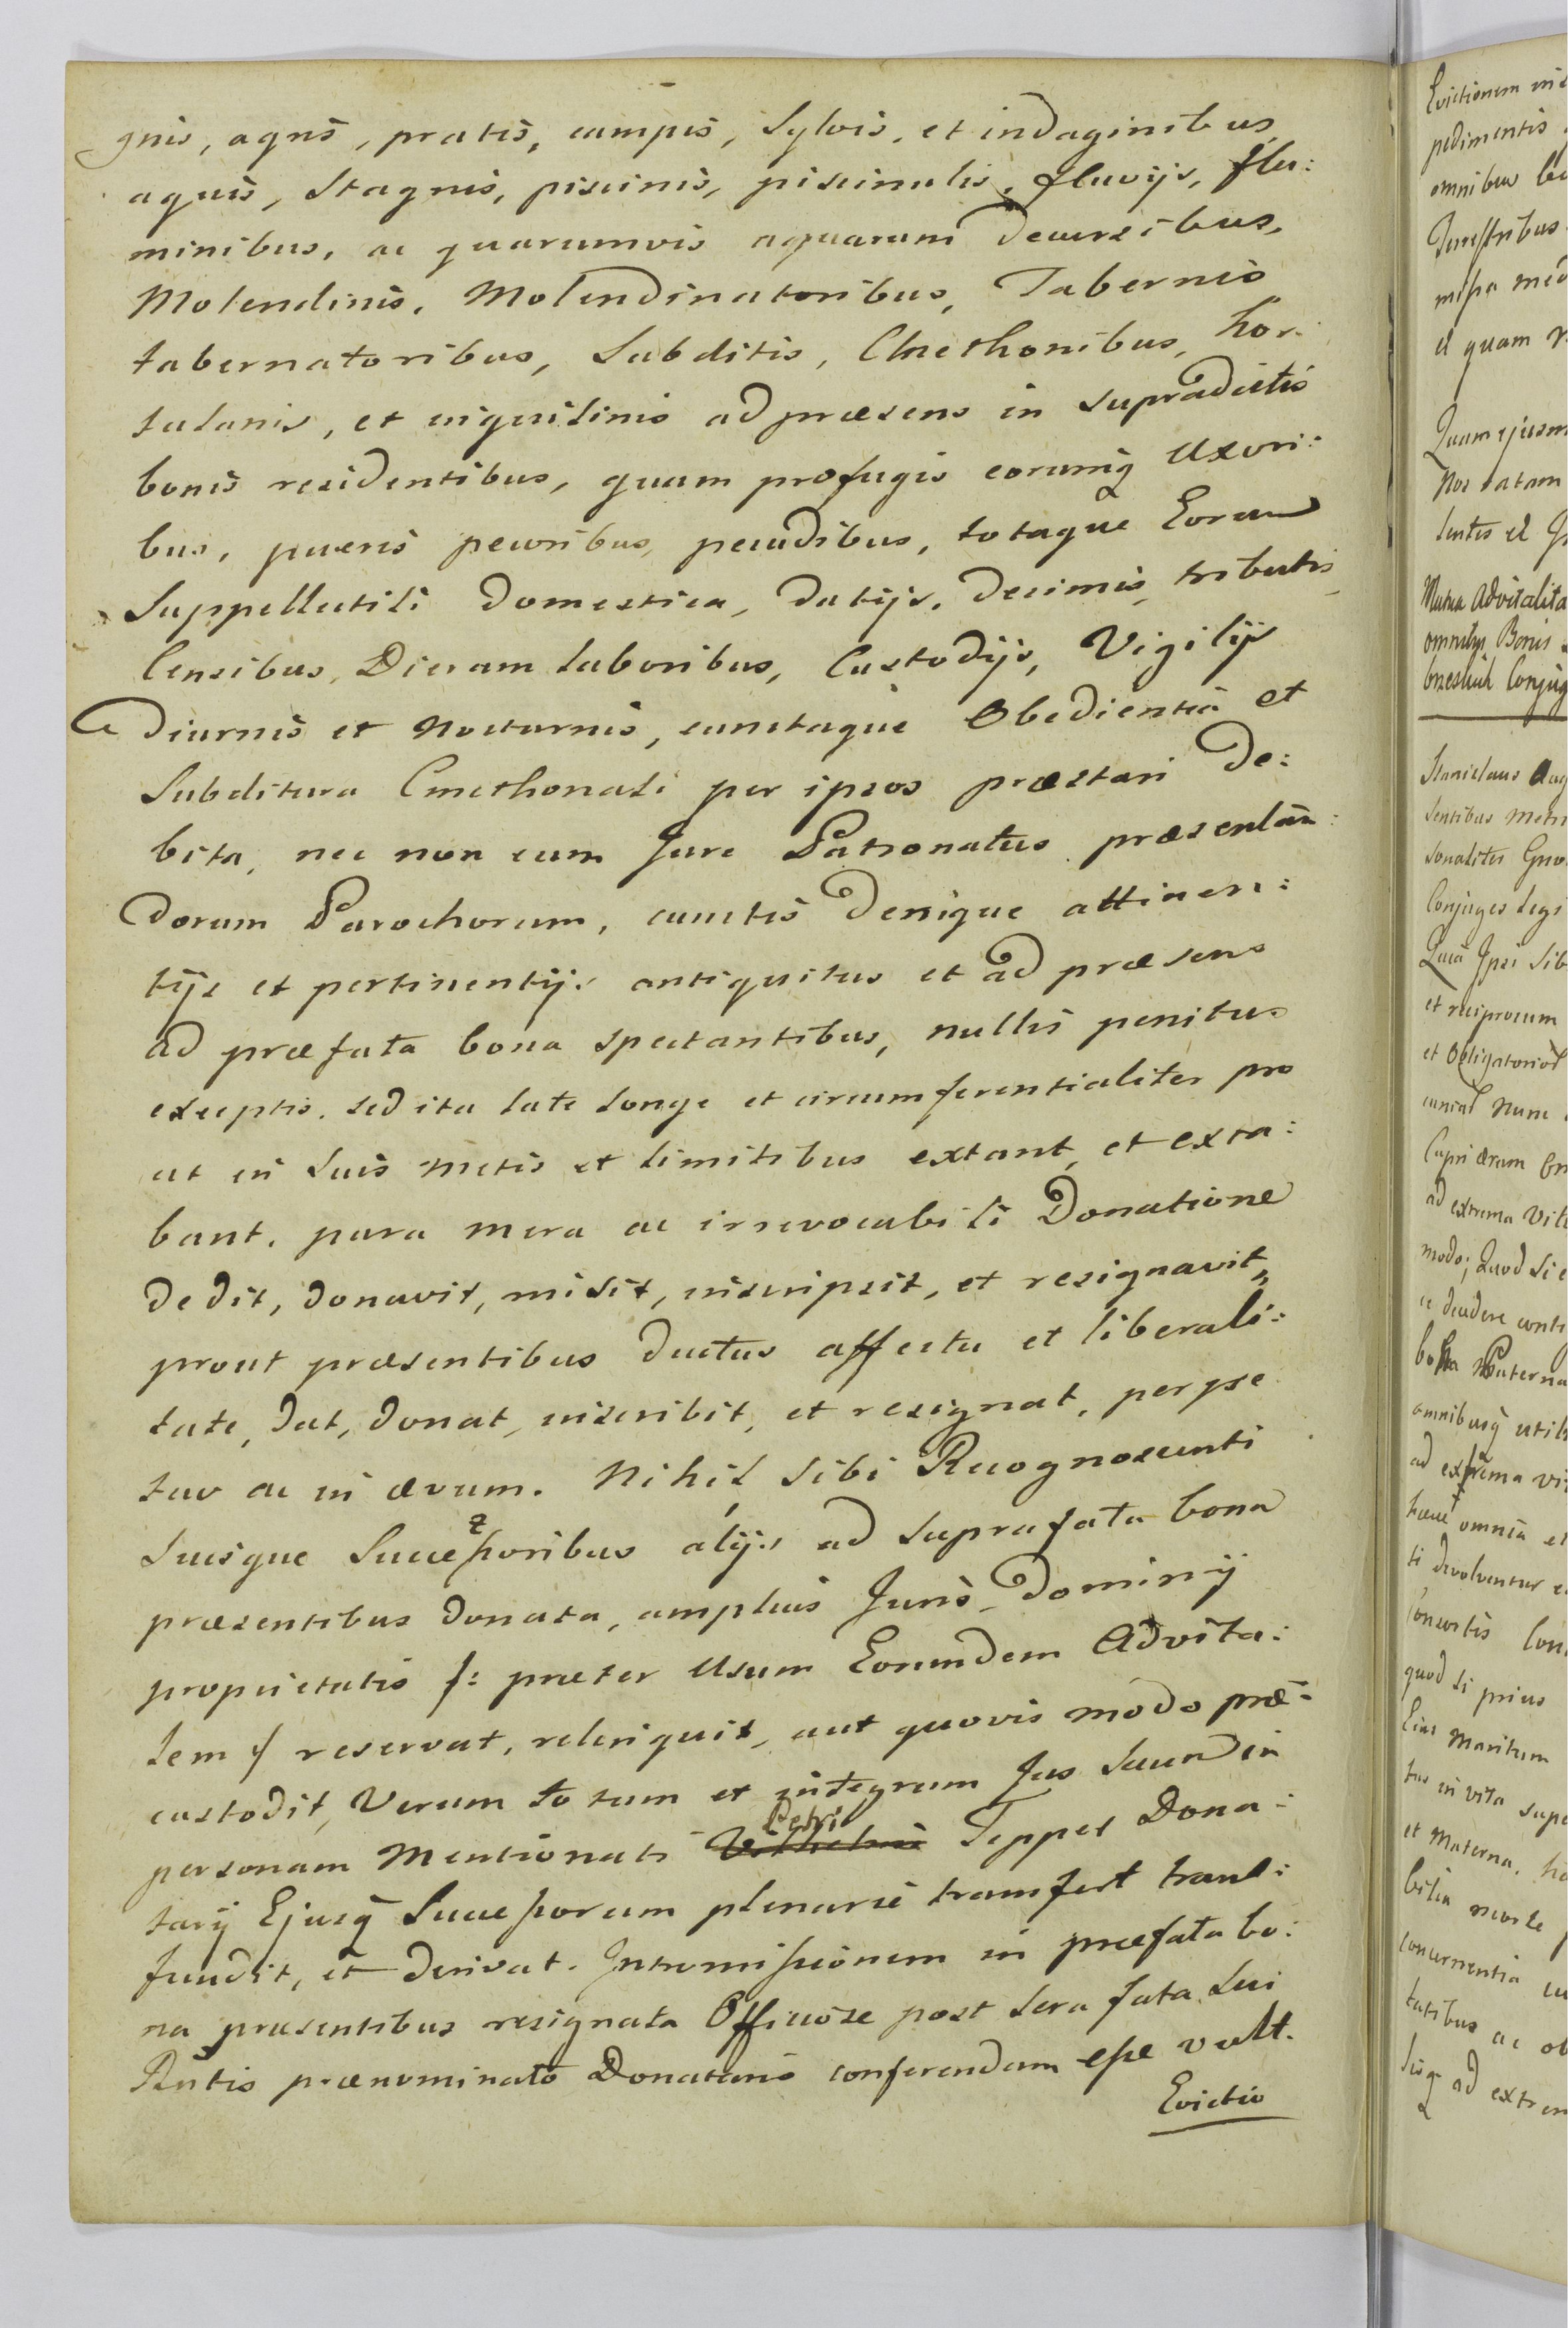 gnis, agris, pratis, campis, Sylvis, et indaginibus
aquis, Stagnis, piscinis, piscinulis, fluvijs, flu:
minibus, ac quarumvis aquarum decursibus,
Molendinis, Molendinatoribus, Tabernis
tabernatoribus, Subditis, Cmethonibus, hor:
tulanis, et inquilinis ad præsens in supradictis
bonis residentibus, quam profugis eorumq Uxori:
bus, pueris pecoribus, pecudibus, totaque Eorum
Suppellectili domestica, datijs, decimis, tributis,
Censibus, Dierum laboribus, Custodijs, Vigilijs
diurnis et Nocturnis, cunctaque Obedientia et
Subditura Cmethonali per ipsos præstari de:
bita, nec non cum Jure Patronatus præsentan:
dorum Parochorum, cunctis denique attinen:
tijs et pertinentijs antiquitus et ad præsens
ad præfata bona spectantibus, nullis penitus
exceptis. sed ita late longe et circumferentialiter pro
ut in Suis metis et limitibus extant, et exta:
bant. pura mera ac irrevocabili Donatione
dedit, donavit, inscripsit, et resignavit,
prout præsentibus ductus affectu et liberali:
tate, dat, donat, inscribit, et resignat, perpe
tuo ac in ævum. Nihil Sibi Recognoscenti
Suisque Successoribus alijs ad suprafata bona
præsentibus donata, amplius Juris, Dominij
proprietatis /: præter Usum Eorundem Advita:
lem / reservat, relinquit, aut quovis modo præ:
custodit, Verum totum et integrum Jus Suum in
personam Mentionati Petri Tepper Dona:
tarij Ejusq Successorum plenarie transfert trans:
fundit, et derivat. Intromissionem in præfata bo:
na præsentibus resignata Officiose post sera fata Sui
Rntis prænominato Donatario conferendam esse vult.
Evictio
Evictionem
pedimentis
omnibus
missa
et quam
Quam ejusm
Nos ratam
Mutua Advitalita
Bonis
Conjug
Stanislaus Aug
sentibus
sonaliter
Conjuges Legi
Quia Ipsi Sib
et reciprocum
et Obligatorio
Nunc
ad extrema vit
modo; Quod si
Paterna
omnibusq
ad extrema vi
omnia et
ti devolventur
Consortis
quod si prius
Ejus Maritum
in vita supe
et Materna.
morte
tatibus ac ob
ad extrem